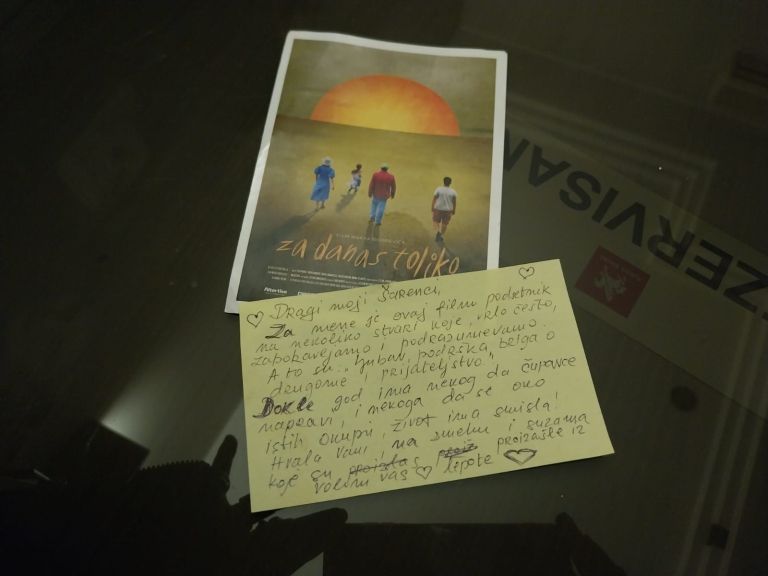 za danas toliko
Dragi moji Šarenci,
Za mene je ovaj film podsetnik
na nekoliko stvari koje, vrlo često,
zaboravljamo i podrazumevamo.
A to su: ljubav, podrška, briga o
drugome i prijateljstvo.
Dokle god ima nekog da čupavce
napravi, i nekoga da se oko
istih okupi, život ima smisla!
Hvala vam, na smehu i suzama
koje su proizašle iz
lepote
Volim vas
ZERVISAN